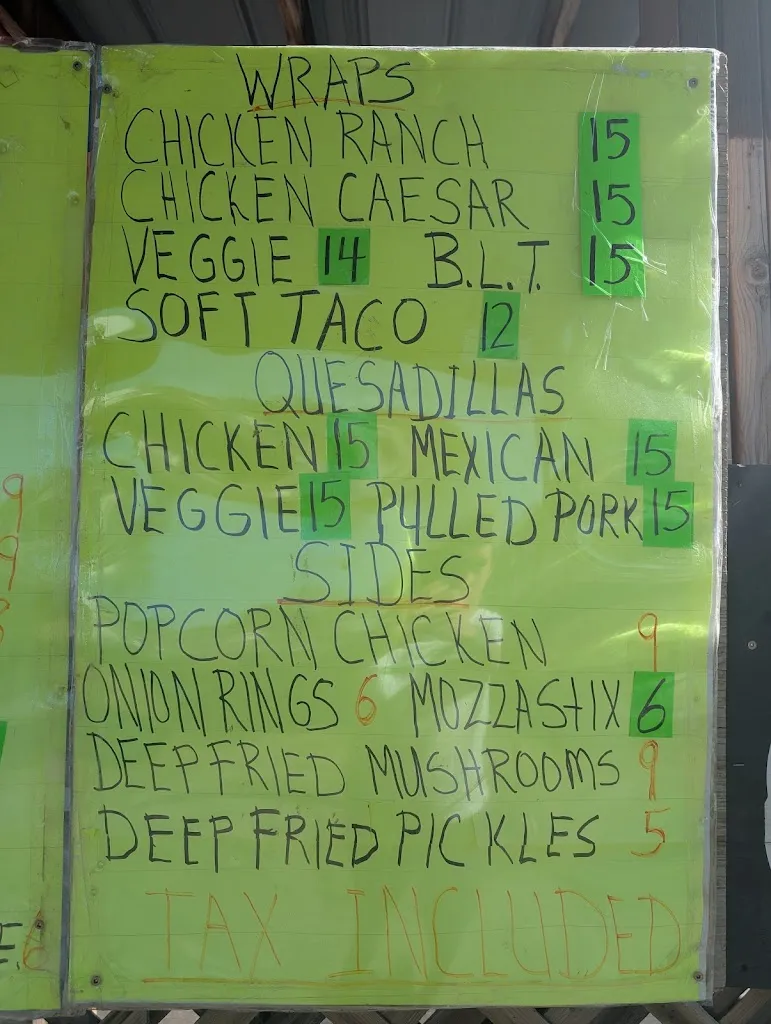 WRAPS
CHICKEN RANCH 15
CHICKEN CAESAR 15
VEGGIE 14 B.L.T. 15
SOFT TACO 12
QUESADILLAS
CHICKEN 15 MEXICAN 15
VEGGIE 15 PULLED PORK 15
SIDES
POPCORN CHICKEN 9
ONION RINGS 6 MOZZASTIX 6
DEEP FRIED MUSHROOMS 9
DEEP FRIED PICKLES 5
TAX INCLUDED
9
9